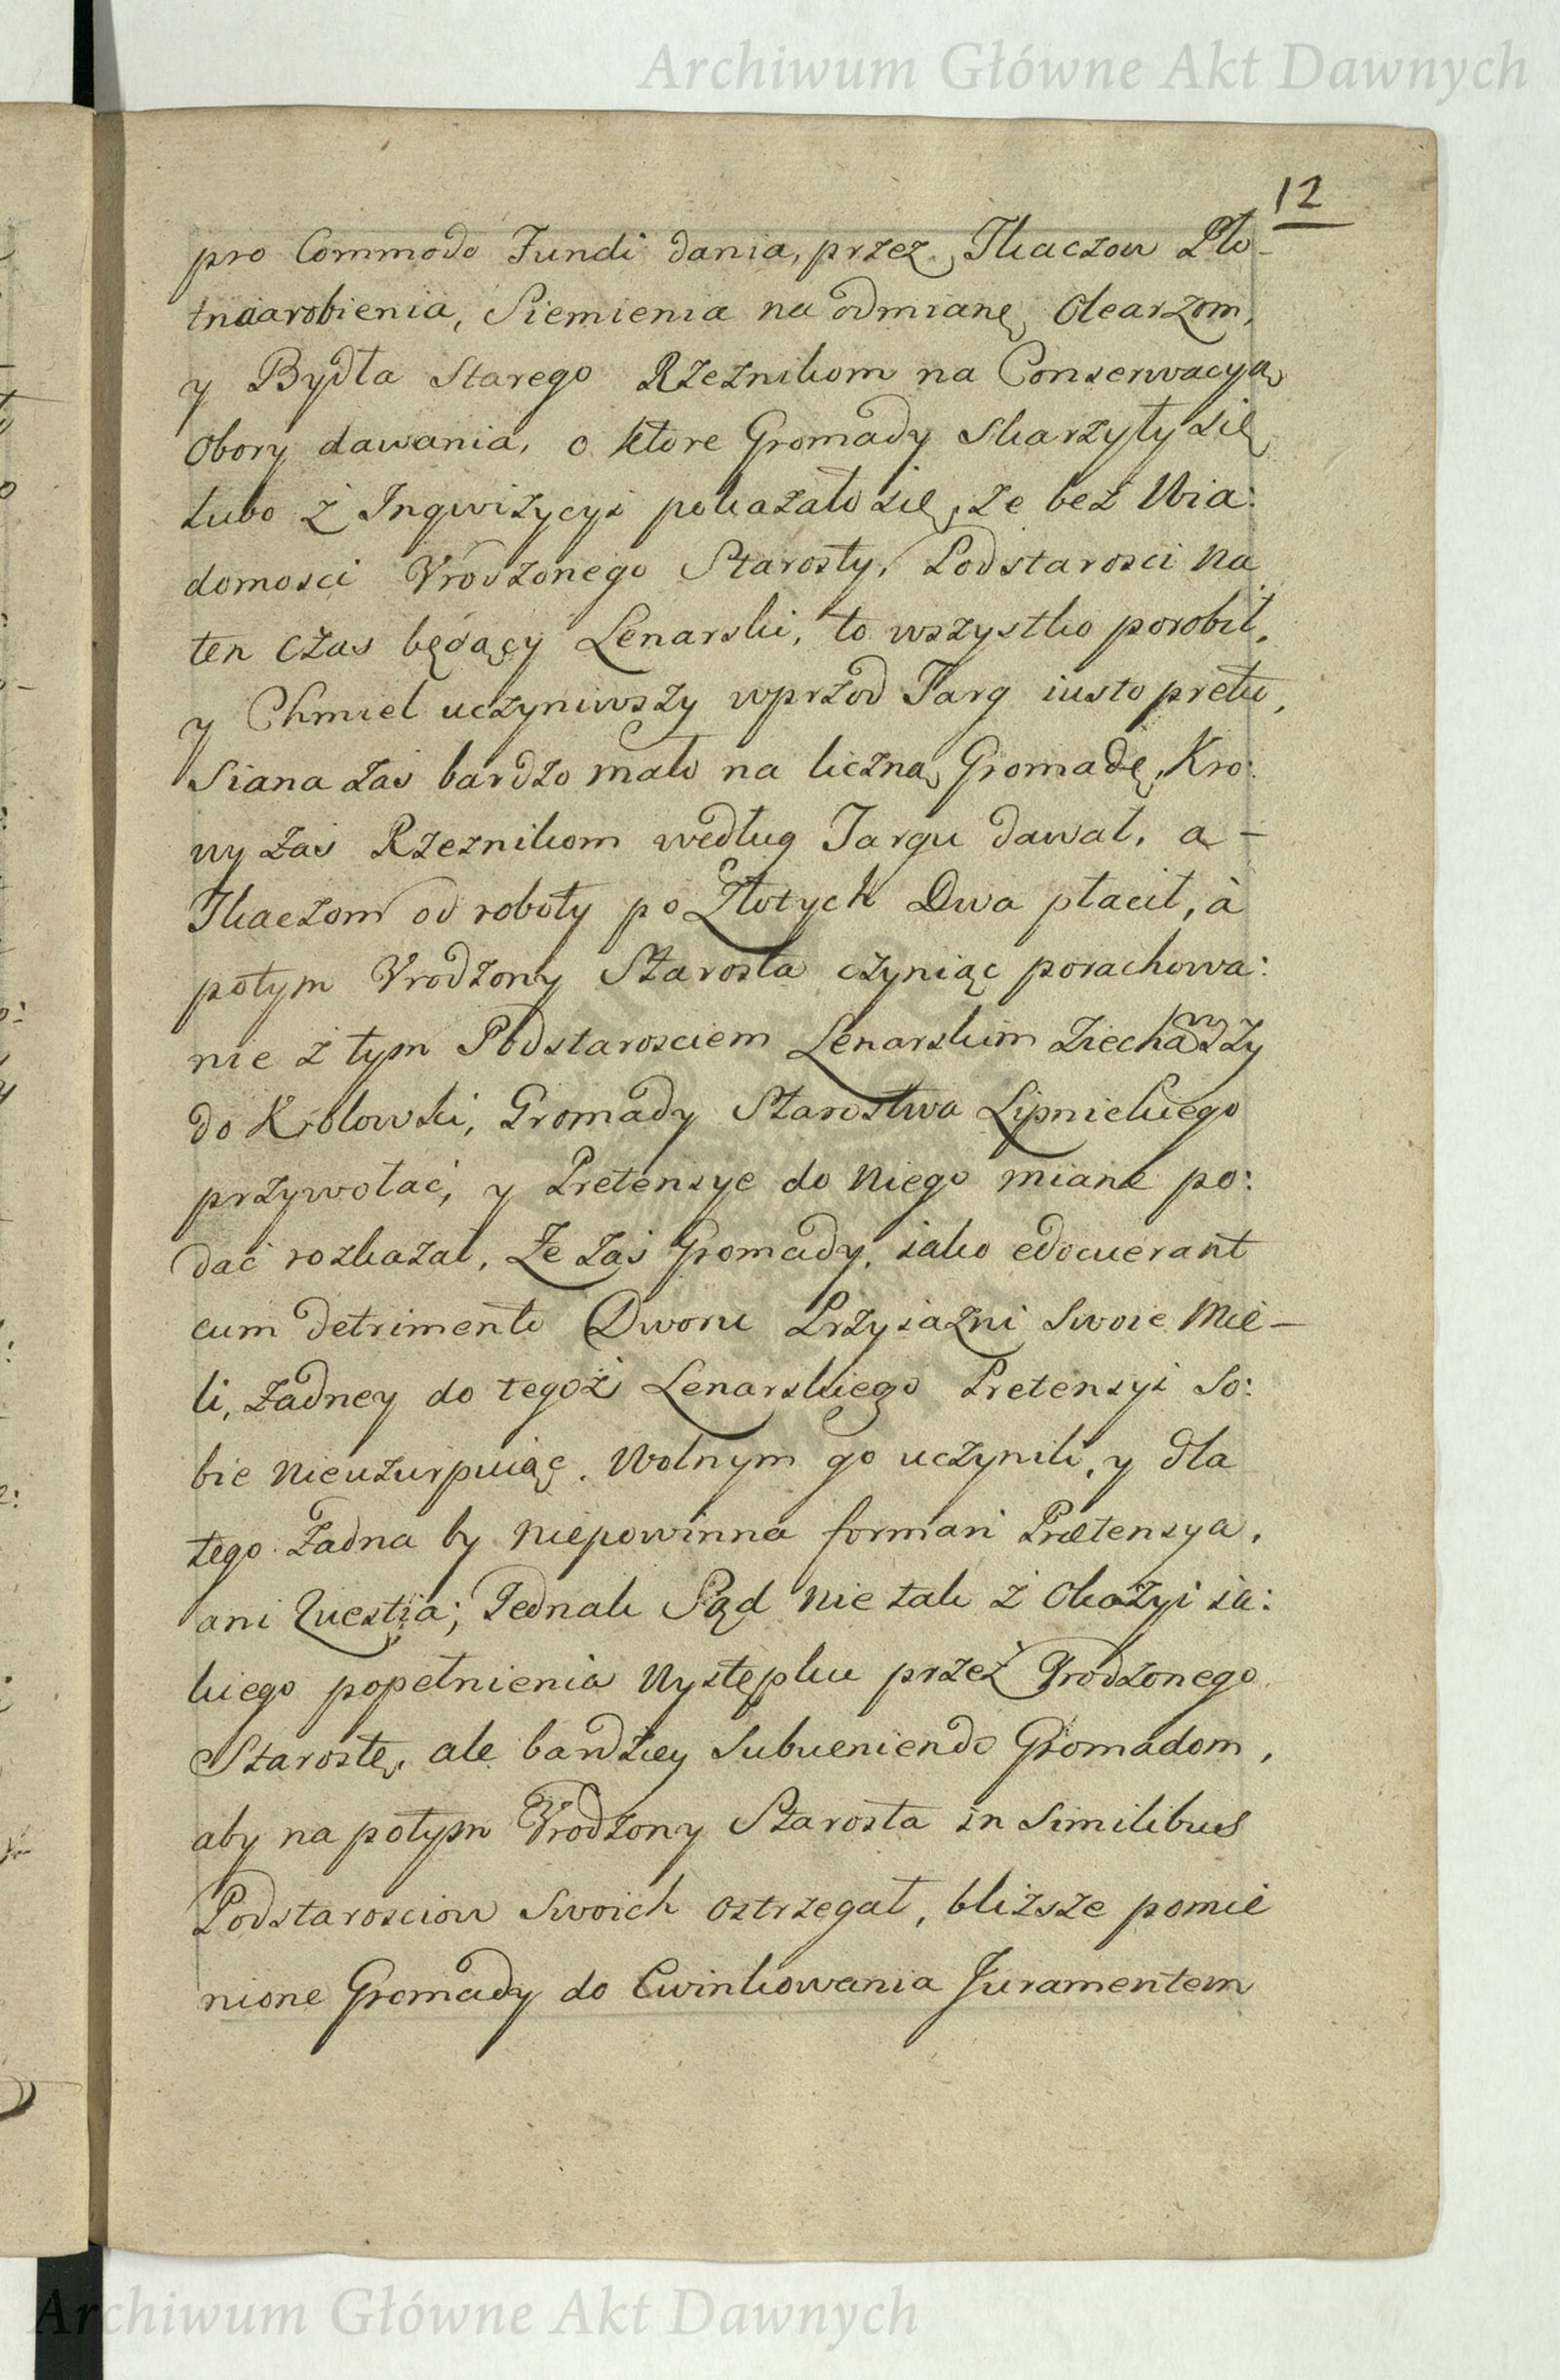 Archiwum Główne Akt Dawnych
12
pro Commodo Fundi dania, przez Tkaczow Płó-
tna arobienia, Siemienia na odmianę Olearzom,
y Bydła Starego Rzeznikom na Conserwacyą
Obory dawania, o ktore Gromady skarzyły się
lubo z Inqwizycyi pokazało się, ze bez Wia:
domosci Vrodzonego Starosty, Podstarosci na
ten czas będący Lenarski, to wszystko porobił,
y Chmiel uczyniwszy wprzod Targ iusto pretio,
Siana zas bardzo mało na liczną Gromadę, Kro:
wy zas Rzeznikom według Targu dawał, a -
Tkaczom od roboty po Złotych Dwa płacił, à
potym Vrodzony Starosta czyniąc porachowa:
nie z tym Podstarosciem Lenarskim ziechawszy
do Krolowki, Gromady Starostwa Lipnickiego
przywołać, y Pretensye do niego miane po:
dać rozkazał, Ze zaś Gromady, iako edocuerant
cum detrimento Dworu Przyiazni swoie Mie-
li, zadney do tegoż Lenarskiego Pretensyi So:
bie nieuzurpuiąc, Wolnym go uczynili, y dla
tego zadna by niepowinna formari Prætensya,
ani Questia; Jednak Sąd nie tak z Okazyi ia:
kiego popełnienia Występku przez Vrodzonego
Starostę, ale bardziey Subueniendo Gromadom,
aby na potym Vrodzony Starosta in Similibus
Podstarosciow Swoich ostrzegał, bliższe pomie
nione Gromady do Ewinkowania Juramentem
Archiwum Główne Akt Dawnych